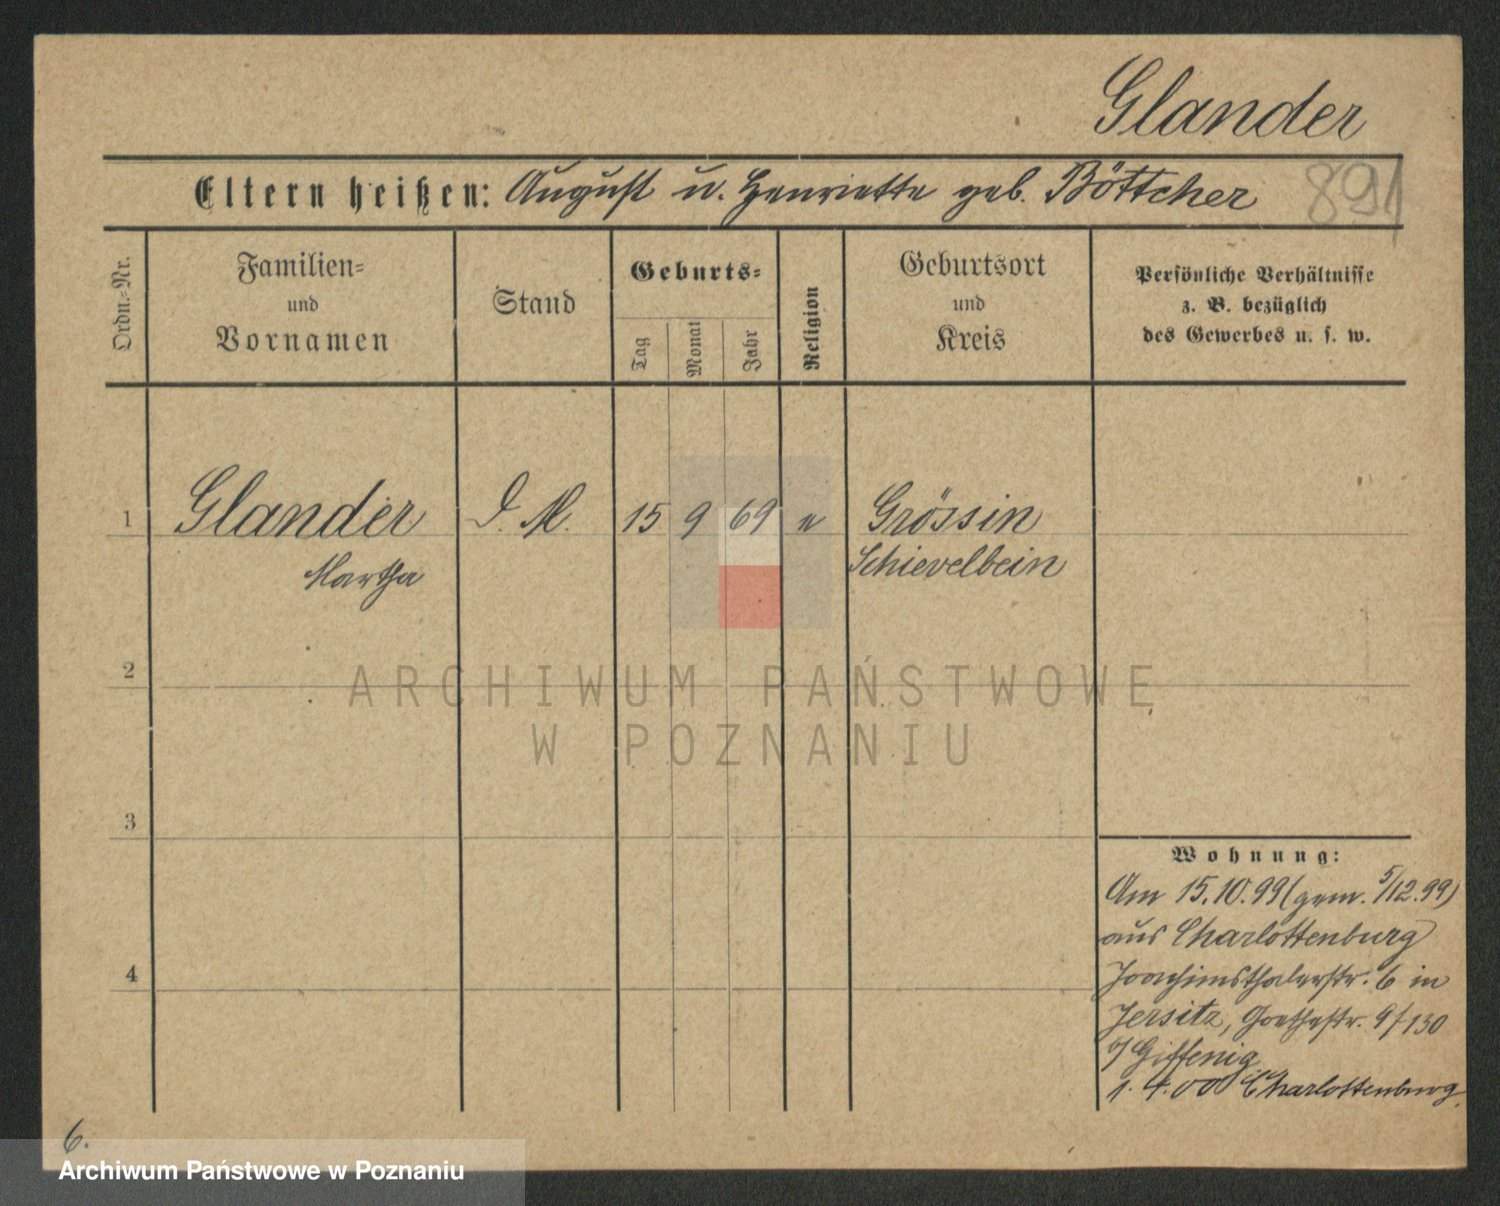 Glander
Eltern heißen: August u. Henriette geb. Böttcher
891
Ordn.-Nr.
Familien-
und
Vornamen
Stand
Geburts-
Tag
Monat
Jahr
Religion
Geburtsort
und
Kreis
Persönliche Verhältnisse
z. B. bezüglich
des Gewerbes u. s. w.
1 Glander D. M. 15 9 69 Grössin
Martha Schievelbein
2
ARCHIWUM PAŃSTWOWE
W POZNANIU
3
Wohnung:
Am 15.10.99 (gem. 5/12.99)
aus Charlottenburg
4
Joachimsthalerstr. 6 in
Jersitz, Goethestr. 9
b/
1. 4. 00 Charlottenburg.
6.
Archiwum Państwowe w Poznaniu